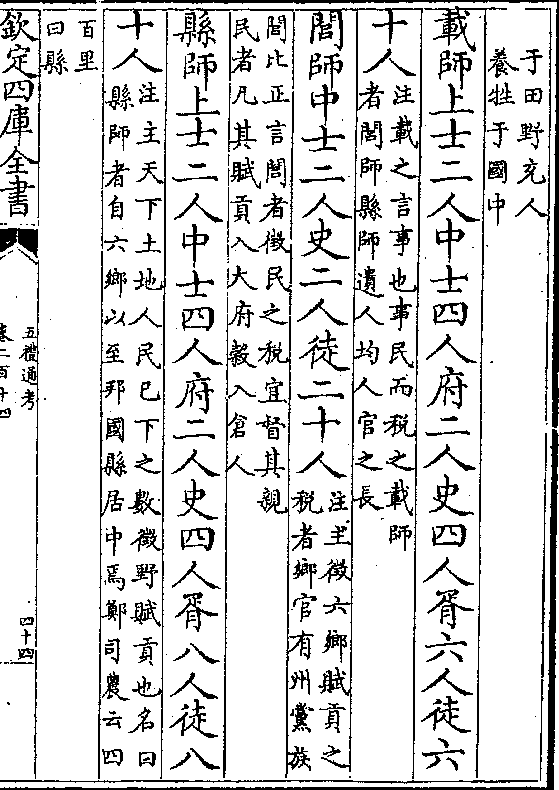 于田野充人
養牲于國中
載師上士二人中士四人府二人史四人胥六人徒六
十人注載之言事也事民而稅之載師
者閭師縣師遺人均人官之長
閭師中士二人史二人徒二十人注主徵六鄉賦貢之
稅者鄉官有州黨族
閭比正言閭者徵民之稅宜督其親
民者凡其賦貢入大府穀入倉人
縣師上士二人中士四人府二人史四人胥八人徒八
十人注主天下土地人民已下之數徵野賦貢也名曰
縣師者自六鄉以至邦國縣居中焉鄭司農云四
百里
曰縣
欽定四庫全書
五禮通考
卷二百十四
四十四